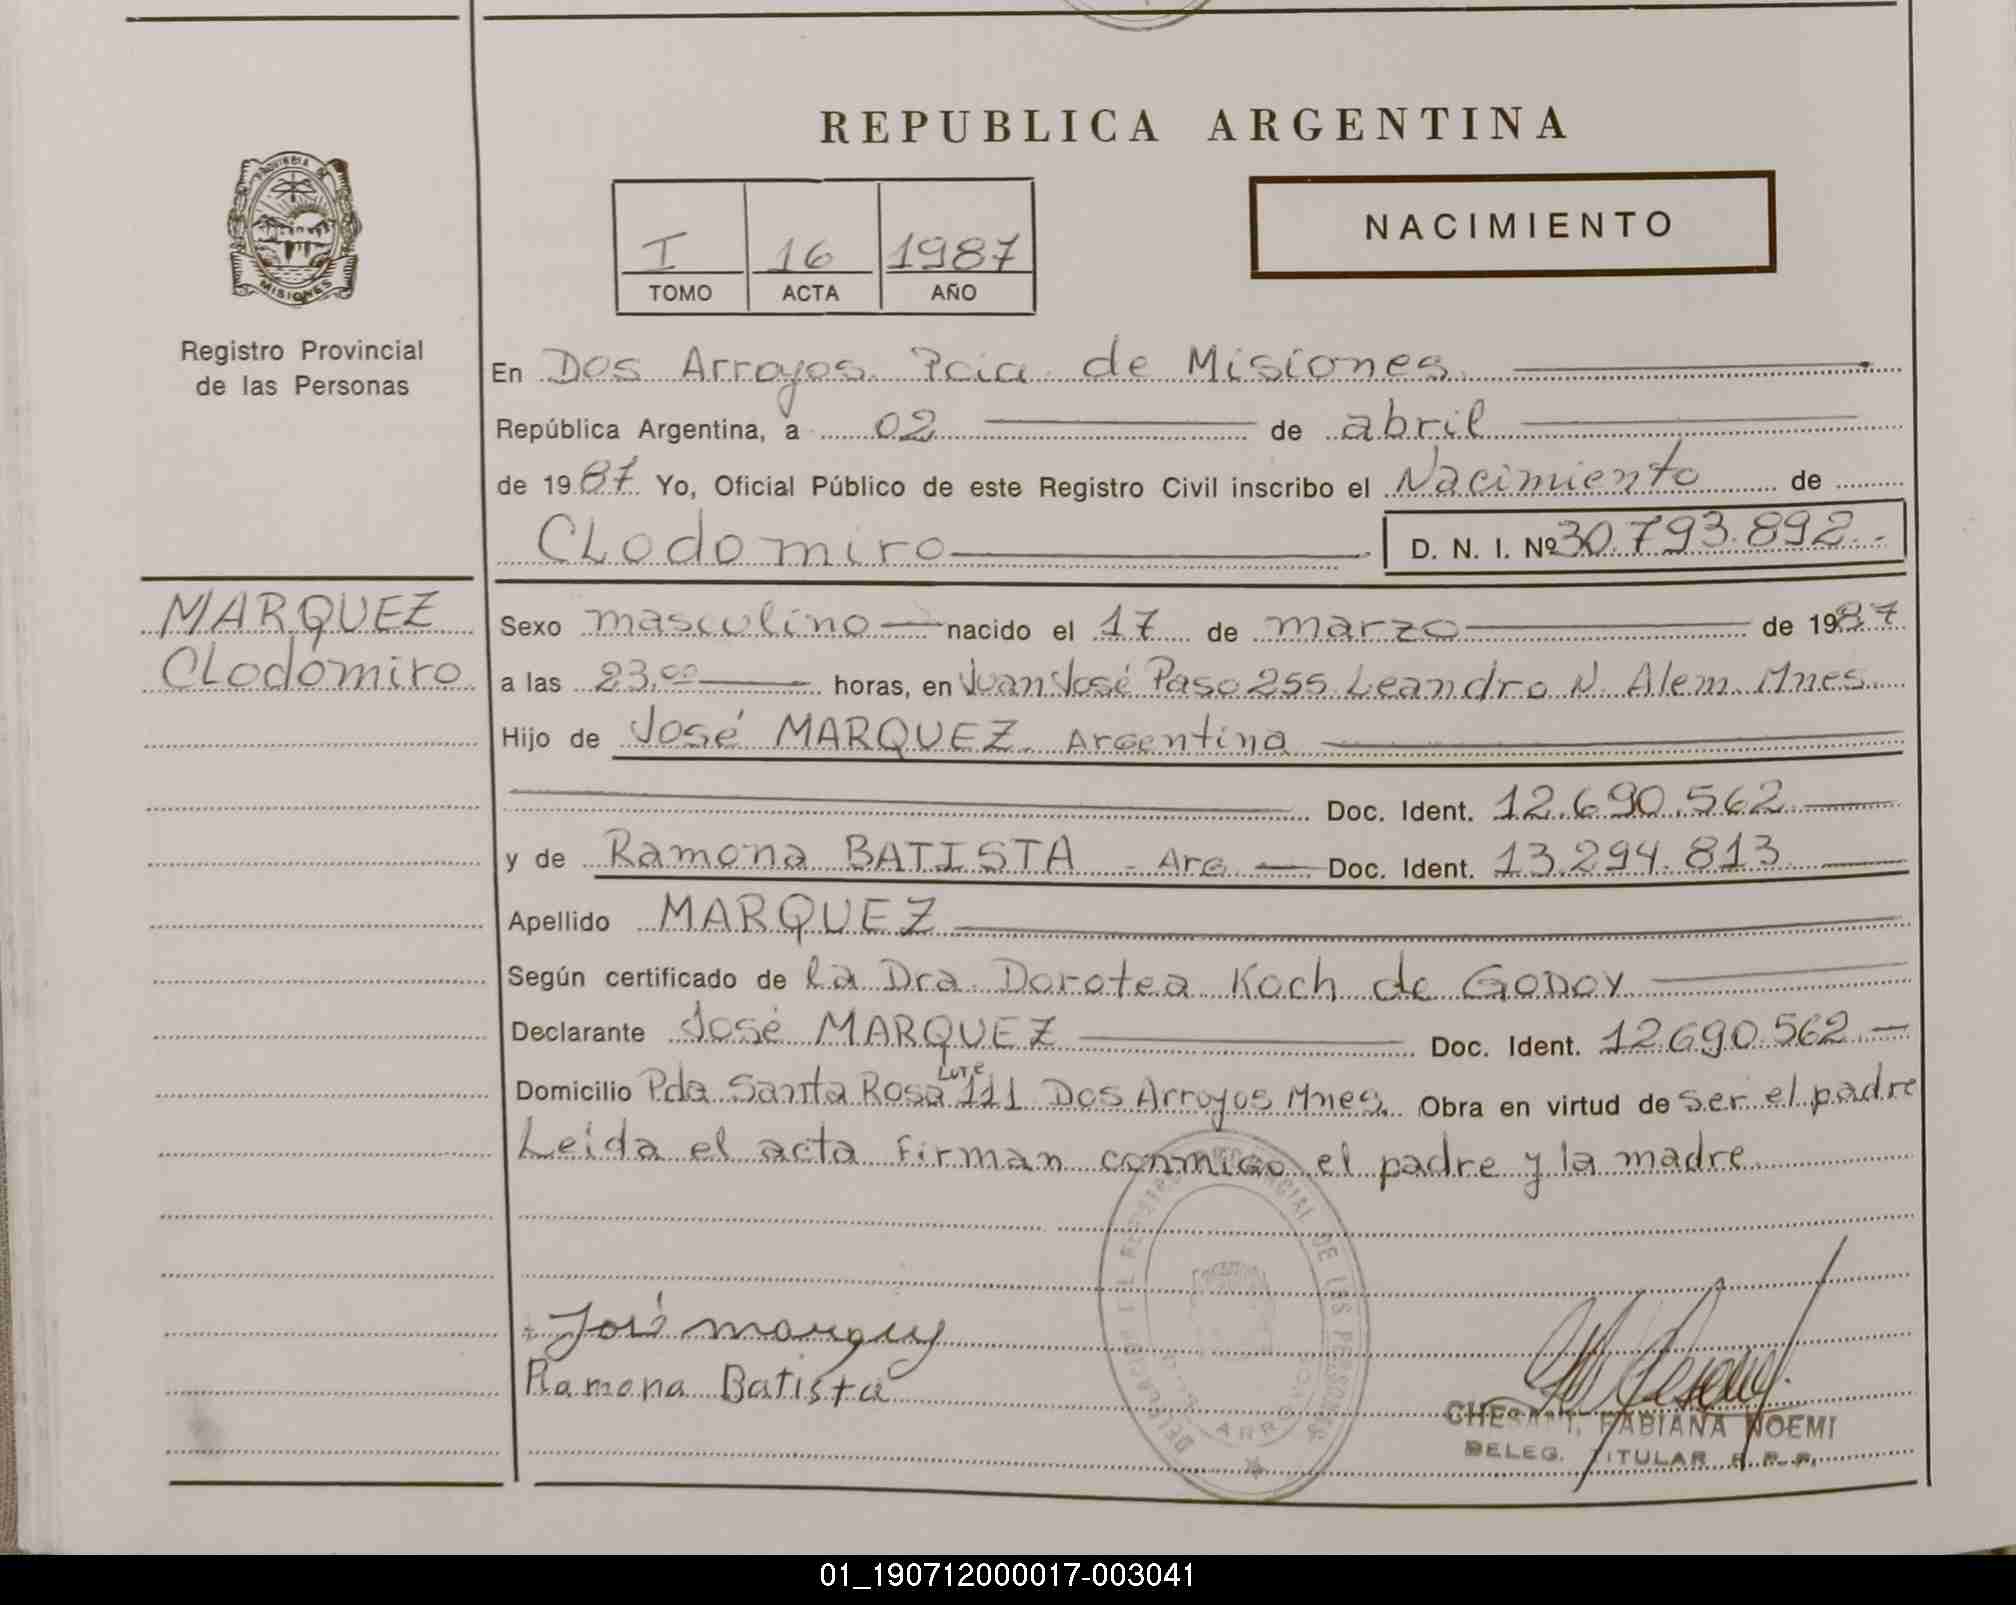 REPUBLICA ARGENTINA
PROVINCIA DE
MISIONES
Registro Provincial
de las Personas
I 16 1987
TOMO ACTA AÑO
NACIMIENTO
En Dos Arroyos Pcia de Misiones
República Argentina, a 02 de abril
de 1987 Yo, Oficial Público de este Registro Civil inscribo el Nacimiento de
CLodomiro D. N. I. Nº 30.793.892.-
MARQUEZ
CLodomiro
Sexo masculino nacido el 17 de marzo de 1987
a las 23,00 horas, en Juan José Paso 255 Leandro N. Alem Mnes
Hijo de José MARQUEZ Argentina
Doc. Ident. 12.690.562
y de Ramona BATISTA - Arg. Doc. Ident. 13.294.813
Apellido MARQUEZ
Según certificado de la Dra Dorotea Koch de GODOY
Declarante José MARQUEZ Doc. Ident. 12.690.562.-
Domicilio Pda Santa Rosa Lote 111 Dos Arroyos Mnes. Obra en virtud de ser el padre
Leida el acta firman conmigo el padre y la madre
José marquez
Ramona Batista
FABIANA NOEMI
DELEG. TITULAR R.P.P.
01_190712000017-003041